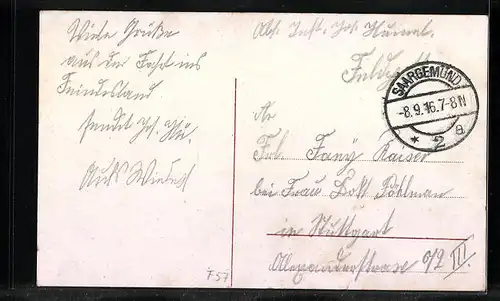 Viele Grüße
aus der Fahrt ins
Feindesland
sendet
Auf Wieders
Abs. Inft.
Feldpost
SAARGEMÜND
-8.9.16.7-8N
* 2 a
An
Frl. Fany Kaiser
bei Frau Pöhlman
in Stuttgart
Alexanderstrasse 72 III.
F57